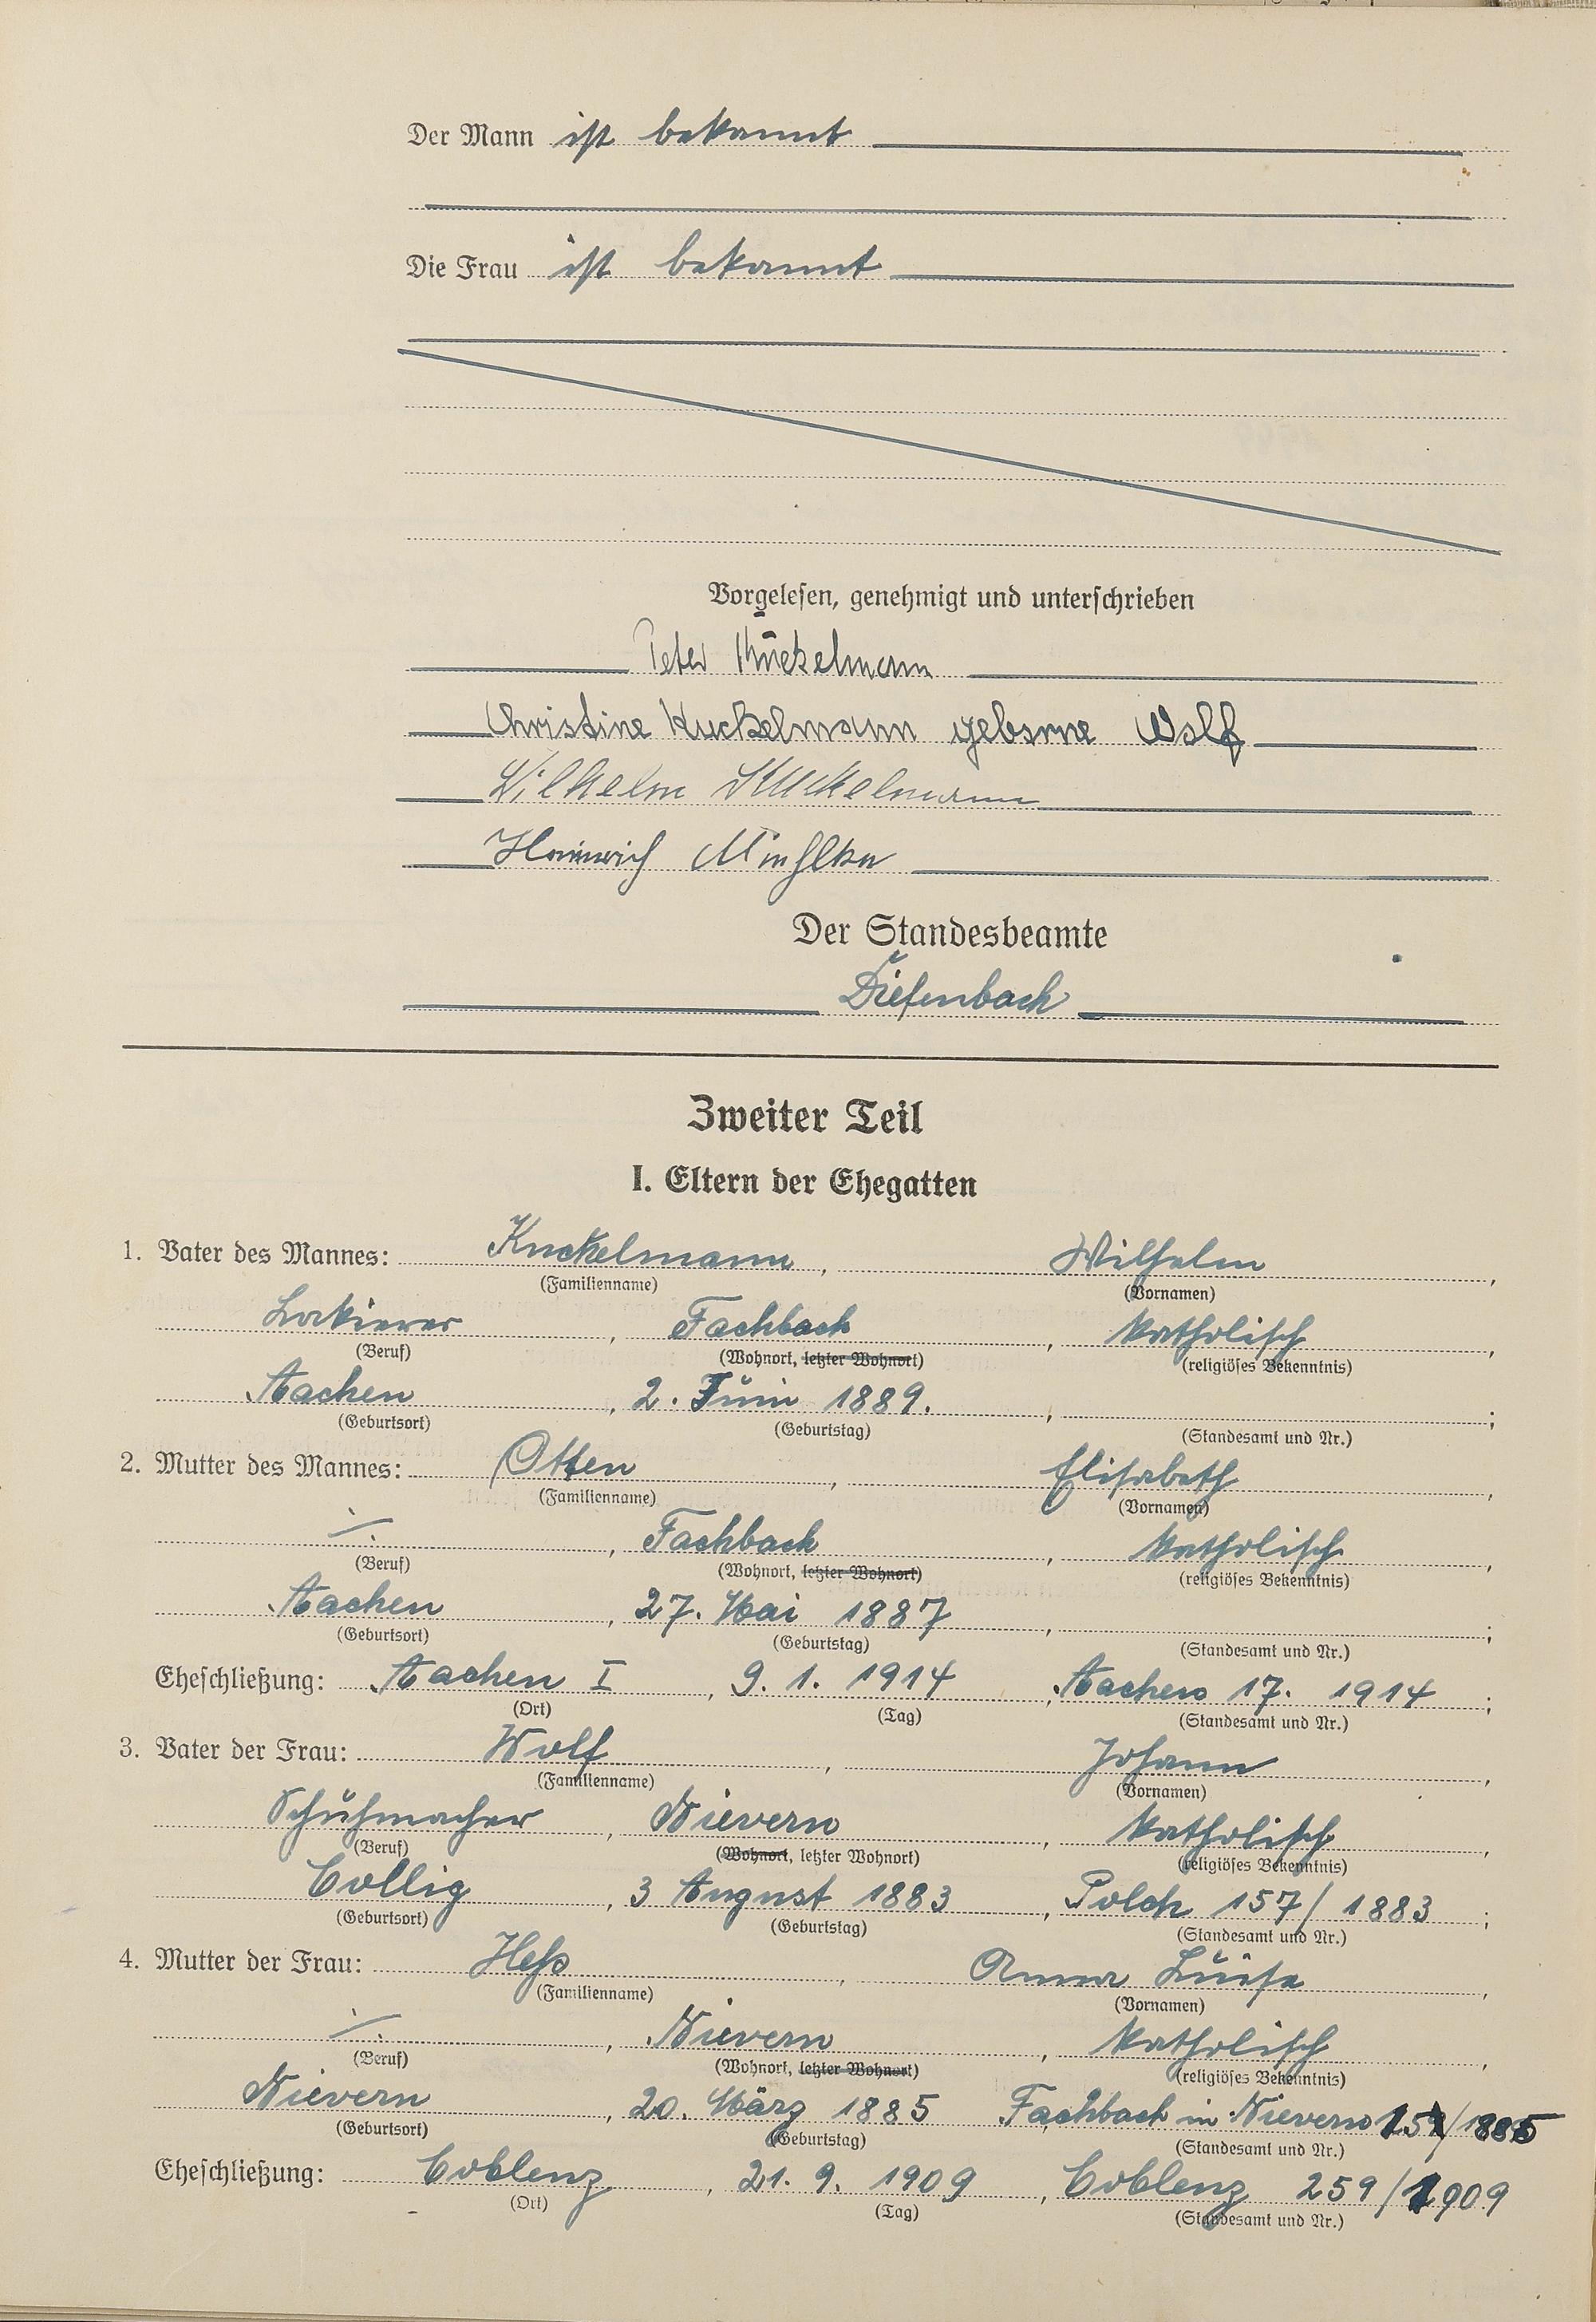 Der Mann ist bekannt
Die Frau ist bekannt
Vorgelesen, genehmigt und unterschrieben
Peter Kuckelmann
Christine Kuckelmann geborne Wolf
Wilhelm Kuckelmann
Heinrich
Der Standesbeamte
Diefenbach
Zweiter Teil
I. Eltern der Ehegatten
1. Vater des Mannes: Kuckelmann, Wilhelm,
(Familienname) (Vornamen)
Lackierer, Fachbach, katholisch,
(Beruf) (Wohnort, letzter Wohnort) (religiöses Bekenntnis)
Aachen, 2. Juni 1889. , ;
(Geburtsort) (Geburtstag) (Standesamt und Nr.)
2. Mutter des Mannes: Otten, Elisabeth,
(Familienname) (Vornamen)
./., Fachbach, katholisch,
(Beruf) (Wohnort, letzter Wohnort) (religiöses Bekenntnis)
Aachen, 27. Mai 1887, ;
(Geburtsort) (Geburtstag) (Standesamt und Nr.)
Eheschließung: Aachen I, 9. 1. 1914, Aachen 17. 1914;
(Ort) (Tag) (Standesamt und Nr.)
3. Vater der Frau: Wolf, Johann,
(Familienname) (Vornamen)
Schuhmacher, Nievern, katholisch,
(Beruf) (Wohnort, letzter Wohnort) (religiöses Bekenntnis)
Collig, 3 August 1883, Polch 157/1883;
(Geburtsort) (Geburtstag) (Standesamt und Nr.)
4. Mutter der Frau: Heß, Anna Luise,
(Familienname) (Vornamen)
./., Nievern, katholisch,
(Beruf) (Wohnort, letzter Wohnort) (religiöses Bekenntnis)
Nievern, 20. März 1885 Fachbach in Nievern /1885
(Geburtsort) (Geburtstag) (Standesamt und Nr.)
Eheschließung: Coblenz, 21. 9. 1909, Coblenz 259/1909
(Ort) (Tag) (Standesamt und Nr.)